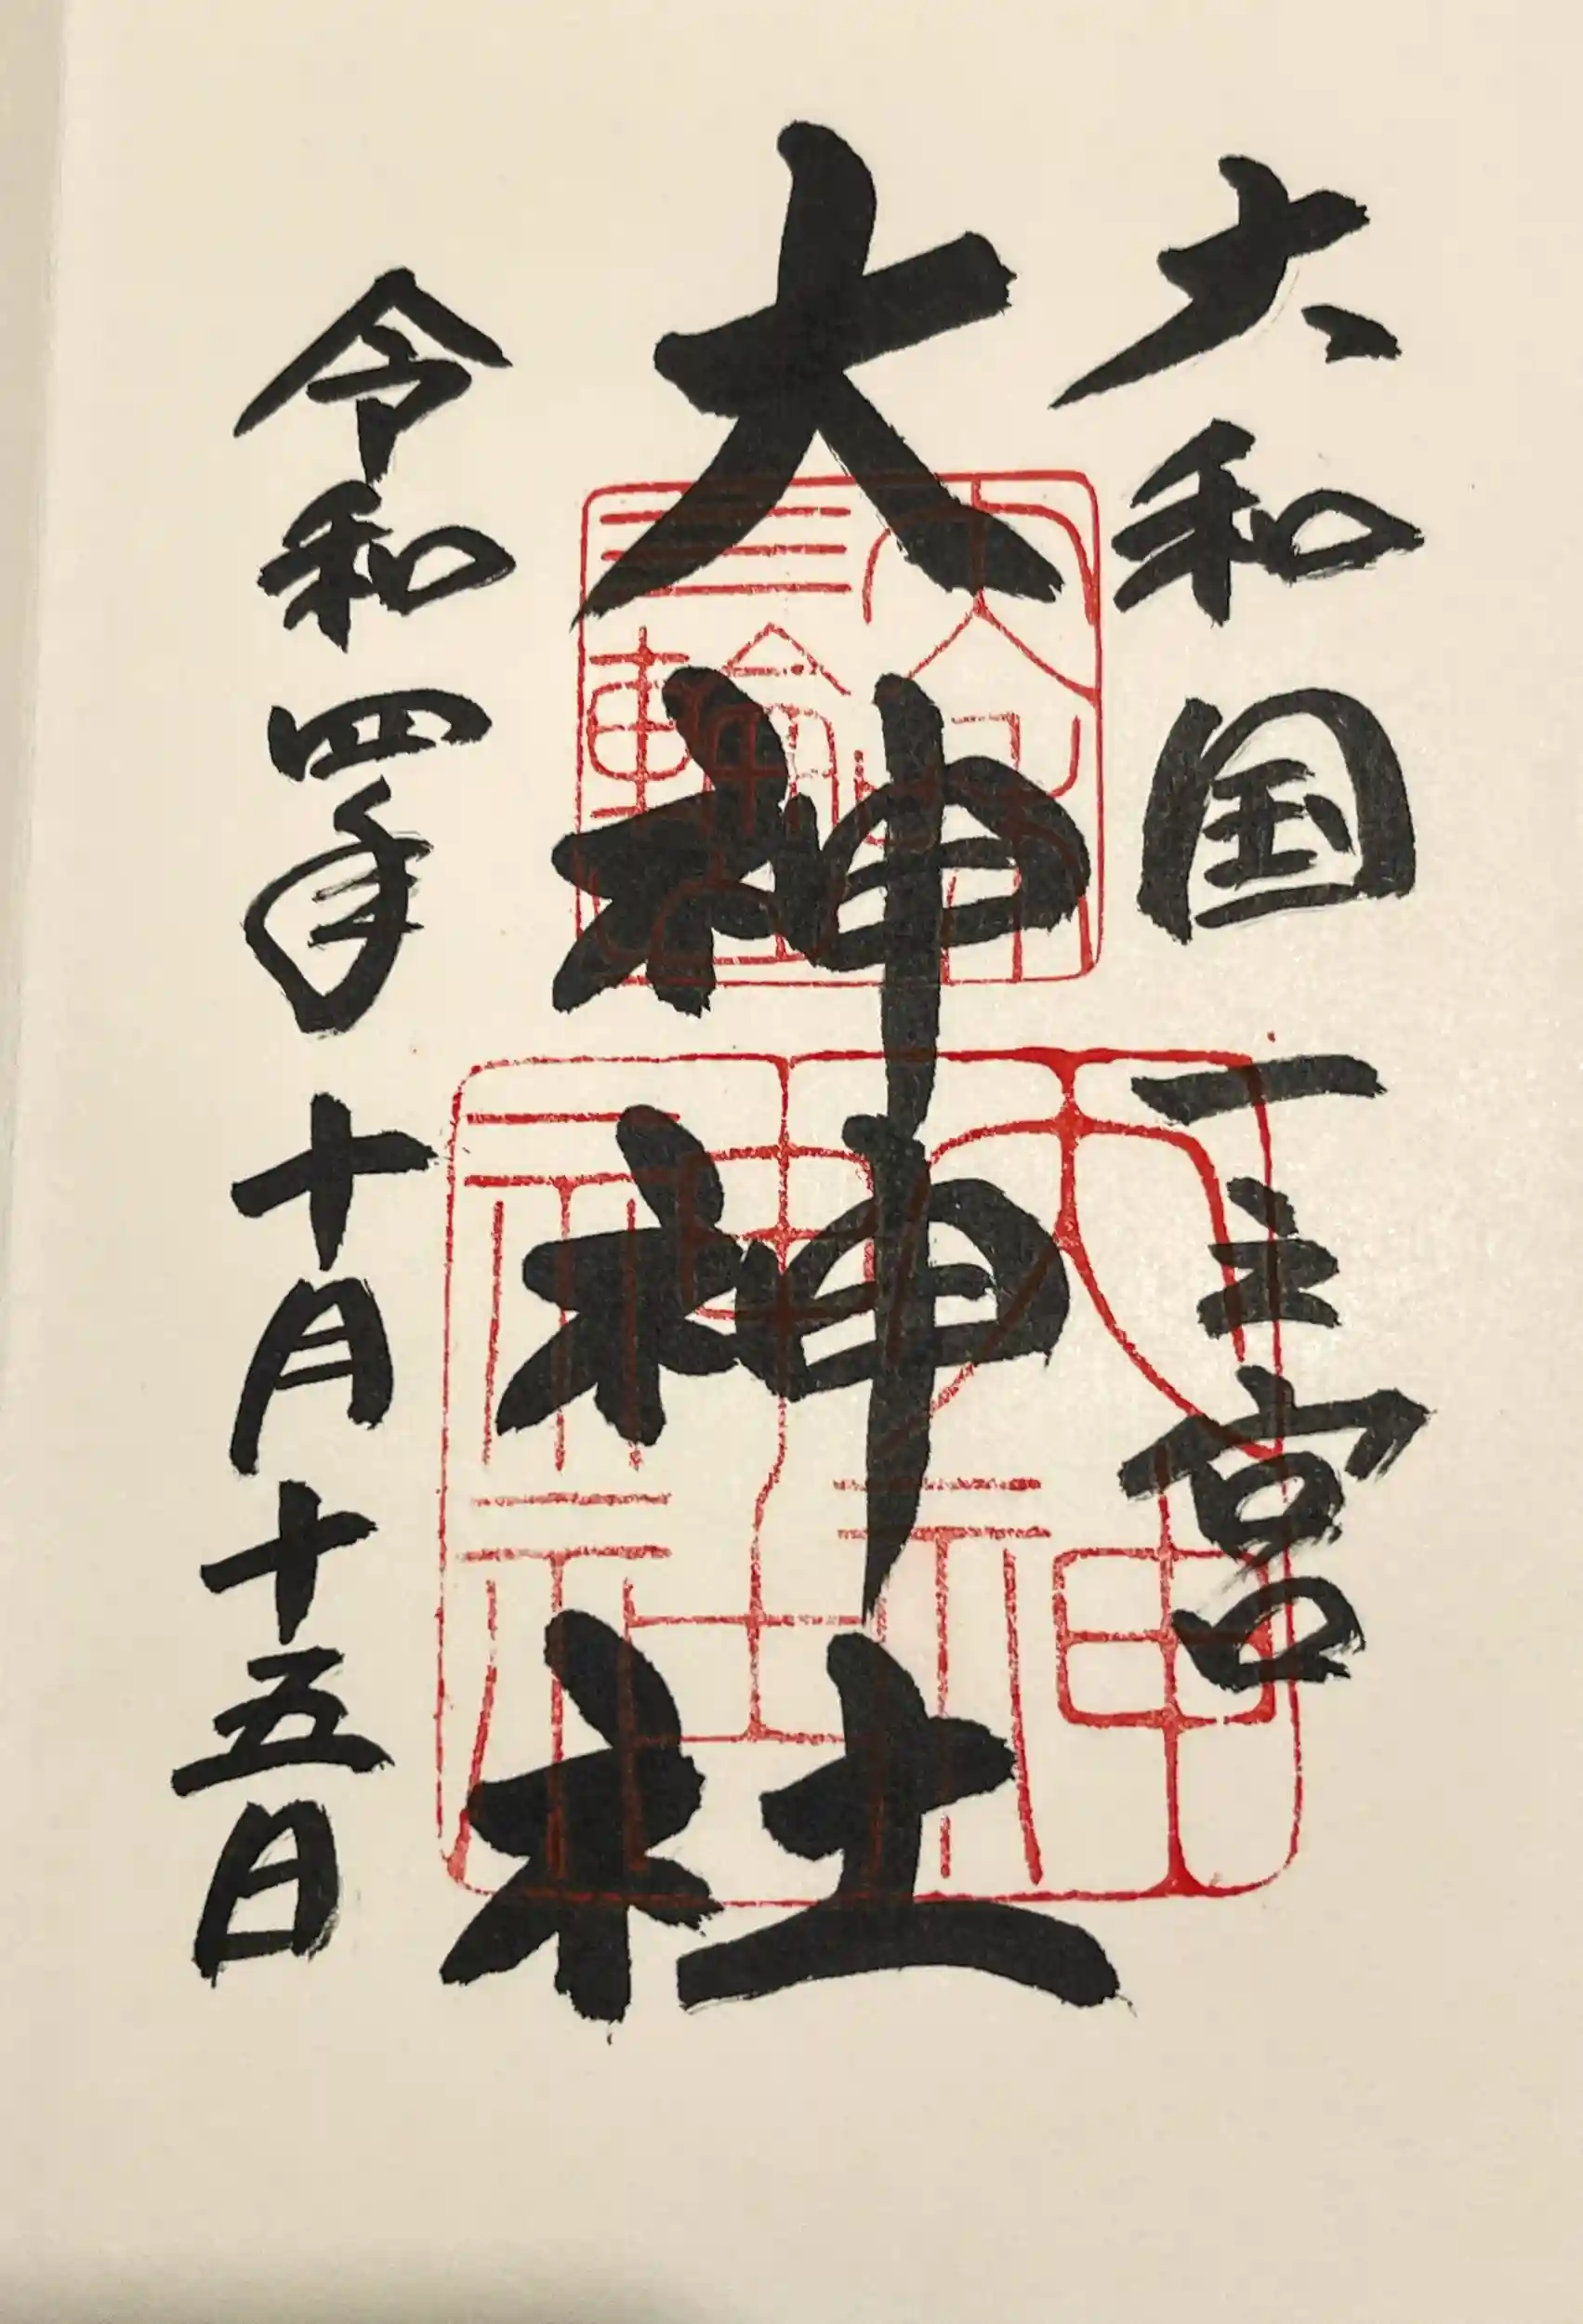 大和国一之宮
大神神社
令和四年十月十五日
大神神社